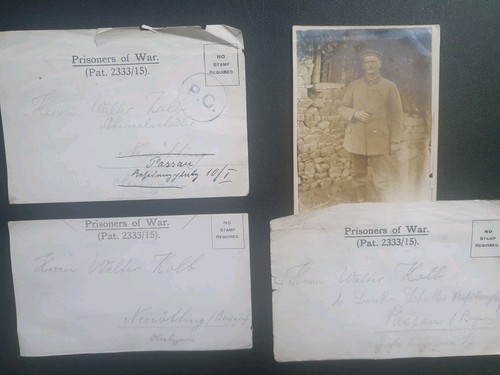 Prisoners of War.
(Pat. 2333/15).
NO
STAMP
REQUIRED
P.C.
Herrn Walter Kolb
Passau
10/I
Prisoners of War.
(Pat. 2333/15).
NO
STAMP
REQUIRED
Herrn Walter Kolb
Neuötting /Bayern
Prisoners of War.
(Pat. 2333/15).
NO
STAMP
REQUIRED
Herrn Walter Kolb
Passau (Bayern)